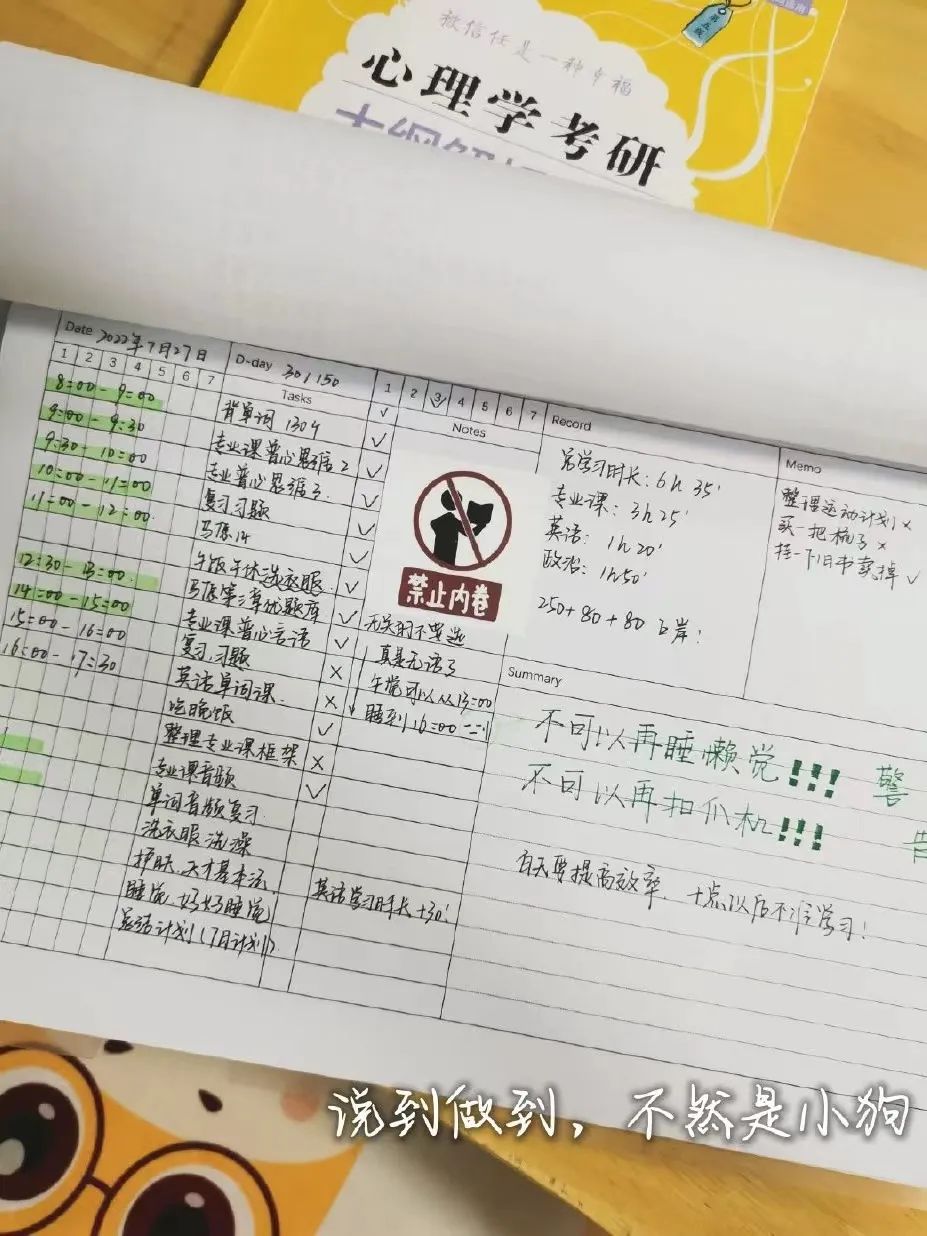 被信任是一种幸福
心理学考研
大纲解
第五版
Date 2022年7月27日
D-day 30/150
1 2 3 4 5 6 7
1 2 3 4 5 6 7
Tasks
Notes
Record
Memo
8:00 - 9:00 背单词 130个 ✓
9:00 - 9:30 专业课普心思语2 ✓
9:30 - 10:00 专业普心思语3. ✓
10:00 - 11:00 复习 习题 ✓
11:00 - 12:00 马原14 ✓
午饭午休洗衣服 ✓
12:30 - 13:00 马原第2章优题库 ✓
14:00 - 15:00 专业课普心言语 ✓
15:00 - 16:00 复习.习题 ✓
16:00 - 17:30 英语单词课 ×
吃晚饭 ×
整理专业课框架 ✓
专业课音频 ×
单词音频复习. ✓
洗衣服 洗澡
护肤.天才基本法
睡觉 好好睡觉
总结计划(7月计划)
禁止内卷
无关的不要选
真是无语了
午觉可以从13:00
睡到16:00
英语学习时长+30'
总学习时长:6h 35'
专业课:3h 25'
英语:1h 20'
政治:1h50'
250+80+80 上岸!
整理运动计划 ×
买一把梳子 ×
挂一下旧书卖掉 ✓
Summary
不可以再睡懒觉!!! 警
不可以再扣爪机!!! 告
白天要提高效率.十点以后不准学习!
说到做到,不然是小狗